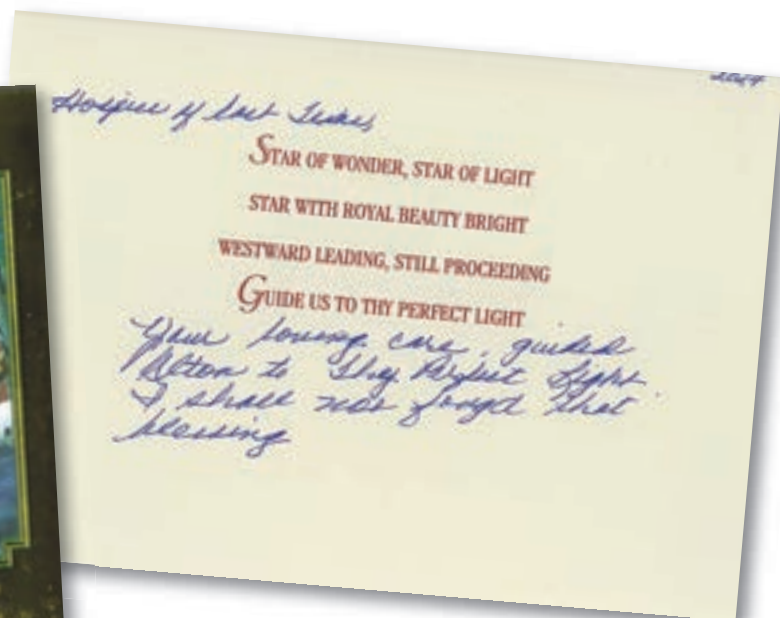 Hospice of East Texas,
STAR OF WONDER, STAR OF LIGHT
STAR WITH ROYAL BEAUTY BRIGHT
WESTWARD LEADING, STILL PROCEEDING
GUIDE US TO THY PERFECT LIGHT
Your loving care, guided
Alton to "Thy Perfect Light."
I shall not forget that
blessing